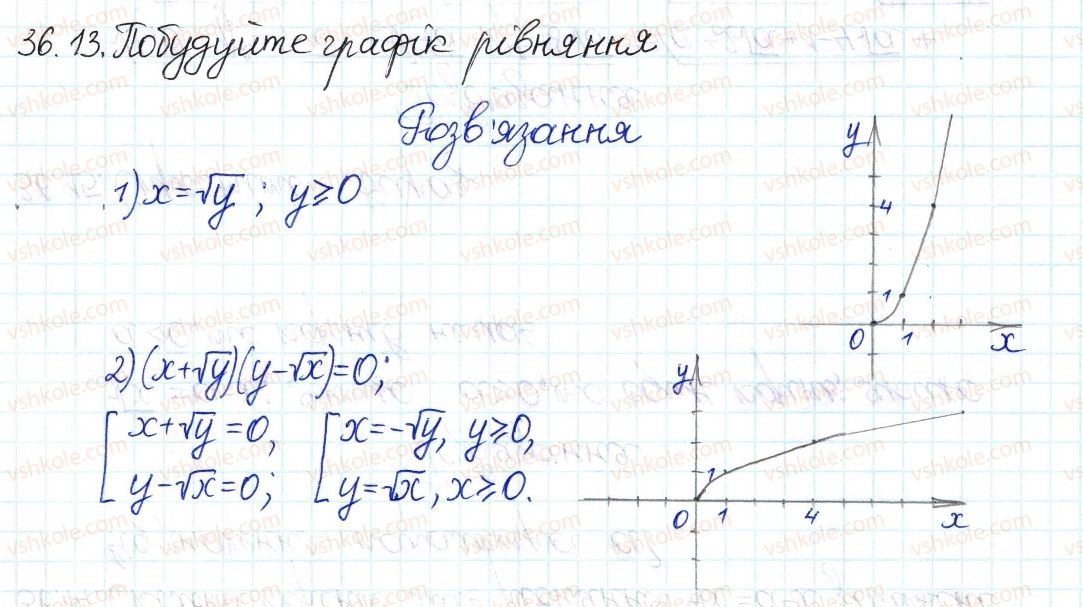 36.13. Побудуйте графік рівняння
Розв'язання
1) x=√y ; y≥0
y
4
1
0 1 x
2) (x+√y)(y-√x)=0;
x+√y=0, x=-√y, y≥0,
y-√x=0; y=√x, x≥0.
y
1
0 1 4 x
vshkole.com